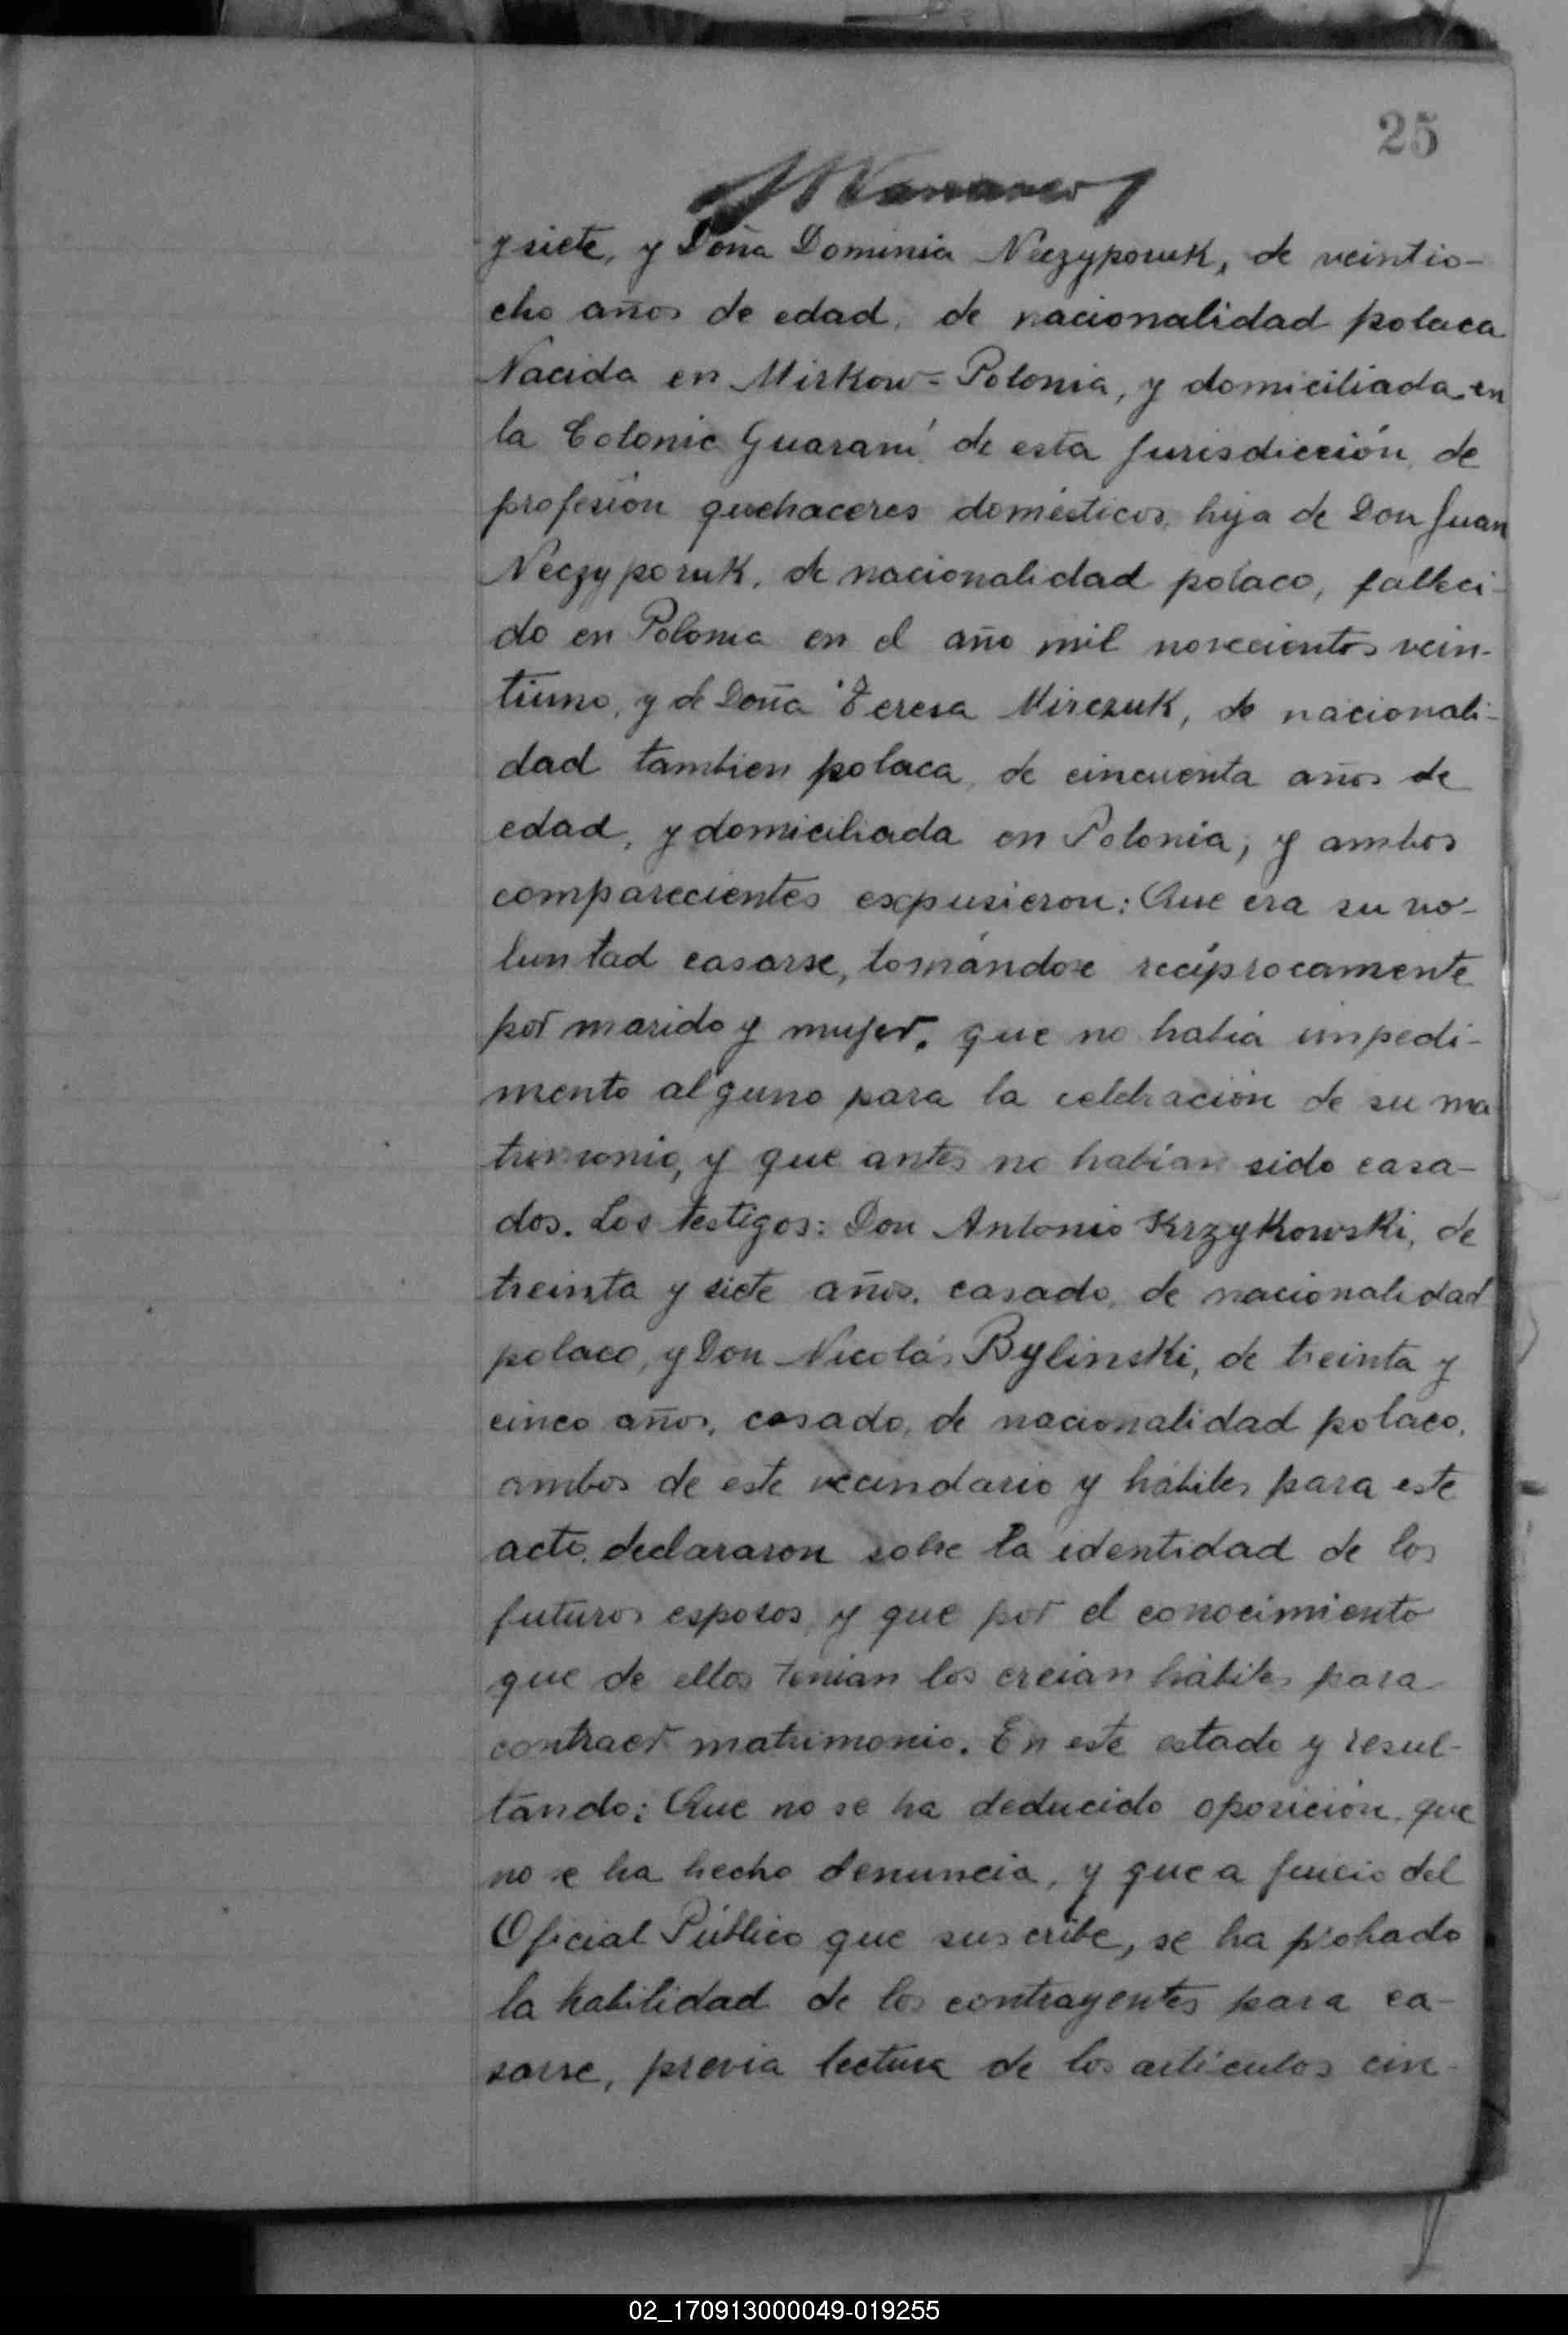 25
y siete, y Doña Dominia Neczyporuk, de veintio-
cho años de edad, de nacionalidad polaca
Nacida en Mirkow = Polonia, y domiciliada en
la Colonia Guaraní de esta Jurisdicción, de
profesión quehaceres domésticos, hija de Don Juan
Neczyporuk, de nacionalidad polaco, falleci-
do en Polonia en el año mil novecientos vein-
tiuno, y de Doña Teresa Mirczuk, de nacionali-
dad tambien polaca, de cincuenta años de
edad, y domiciliada en Polonia; y ambos
comparecientes expusieron: Que era su vo-
luntad casarse, tomándose recíprocamente
por marido y mujer, que no había impedi-
mento alguno para la celebración de su ma
trimonio, y que antes no habían sido casa-
dos. Los testigos: Don Antonio Krzykowski, de
treinta y siete años, casado, de nacionalidad
polaco, y Don Nicolás Bylinski, de treinta y
cinco años, casado, de nacionalidad polaco,
ambos de este vecindario y hábiles para este
acto, declararon sobre la identidad de los
futuros esposos, y que por el conocimiento
que de ellos tenían los creían hábiles para
contraer matrimonio. En este estado y resul-
tando: Que no se ha deducido oposición, que
no se ha hecho denuncia, y que a juicio del
Oficial Público que suscribe, se ha probado
la habilidad de los contrayentes para ca-
sarse, previa lectura de los artículos cin-
02_170913000049-019255